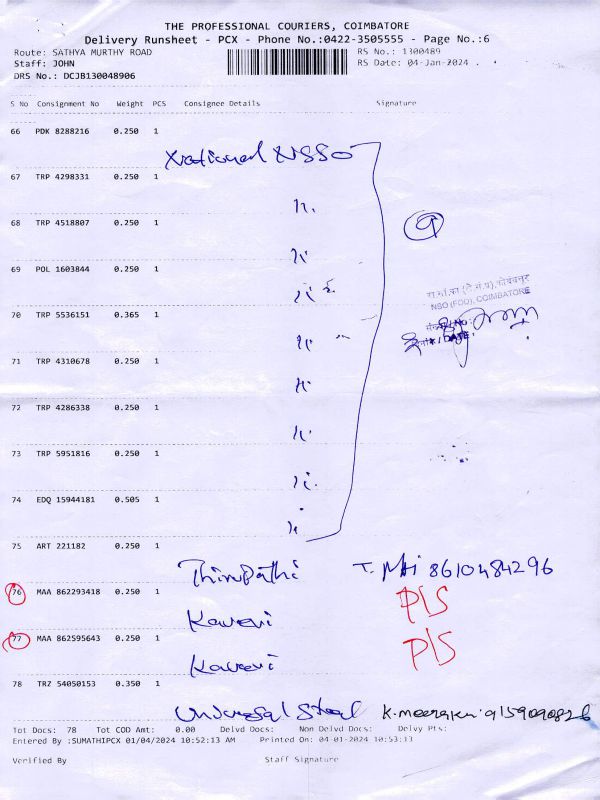 THE PROFESSIONAL COURIERS, COIMBATORE
Delivery Runsheet - PCX - Phone No.:0422-3505555 - Page No.:6
Route: SATHYA MURTHY ROAD RS No.: 1300489
Staff: JOHN RS Date: 04-Jan-2024 .
DRS No.: DCJB130048906
S No Consignment No Weight PCS Consignee Details Signature
66 PDK 8288216 0.250 1
National NSSO
67 TRP 4298331 0.250 1
9
68 TRP 4518807 0.250 1
69 POL 1603844 0.250 1
NSO (FOD), COIMBATORE
70 TRP 5536151 0.365 1
71 TRP 4310678 0.250 1
72 TRP 4286338 0.250 1
73 TRP 5951816 0.250 1
74 EDQ 15944181 0.505 1
75 ART 221182 0.250 1
Thirupathi T. 8610484296
76 MAA 862293418 0.250 1 P/S
Kaveri
77 MAA 862595643 0.250 1 P/S
Kaveri
78 TRZ 54050153 0.350 1
Universal Steel K. 9159090826
Tot Docs: 78 Tot COD Amt: 0.00 Delvd Docs: Non Delvd Docs: Delvy Pts:
Entered By :SUMATHIPCX 01/04/2024 10:52:13 AM Printed On: 04-01-2024 10:53:13
Verified By Staff Signature